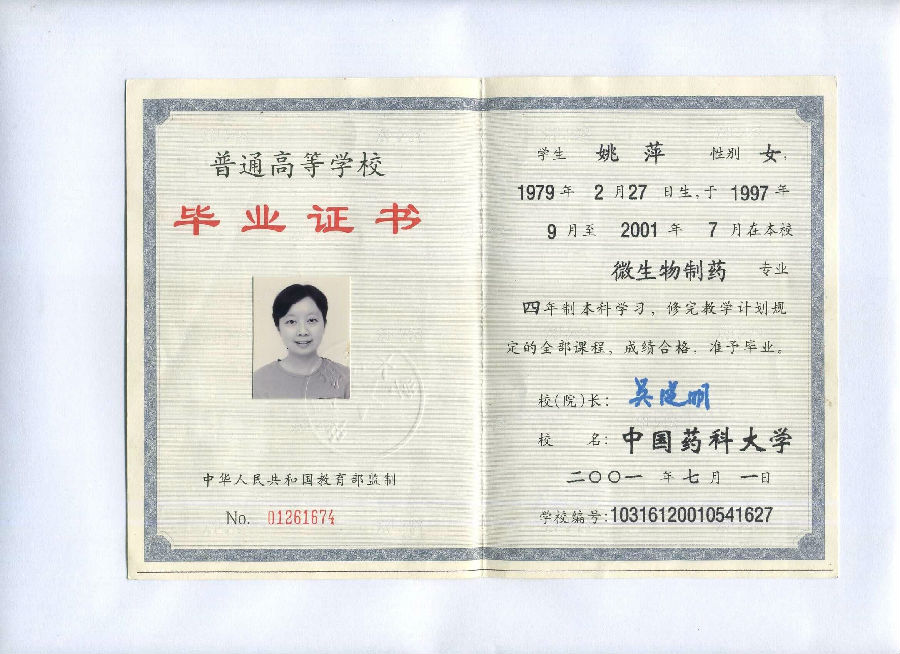 普通高等学校
毕业证书
中华人民共和国教育部监制
No. 01261674
学生 姚萍 性别 女，
1979年 2月27日生，于1997年
9月至 2001年 7月在本校
微生物制药 专业
四年制本科学习，修完教学计划规
定的全部课程，成绩合格，准予毕业。
校（院）长：吴建明
校 名：中国药科大学
二〇〇一年七月一日
学校编号：10316120010541627